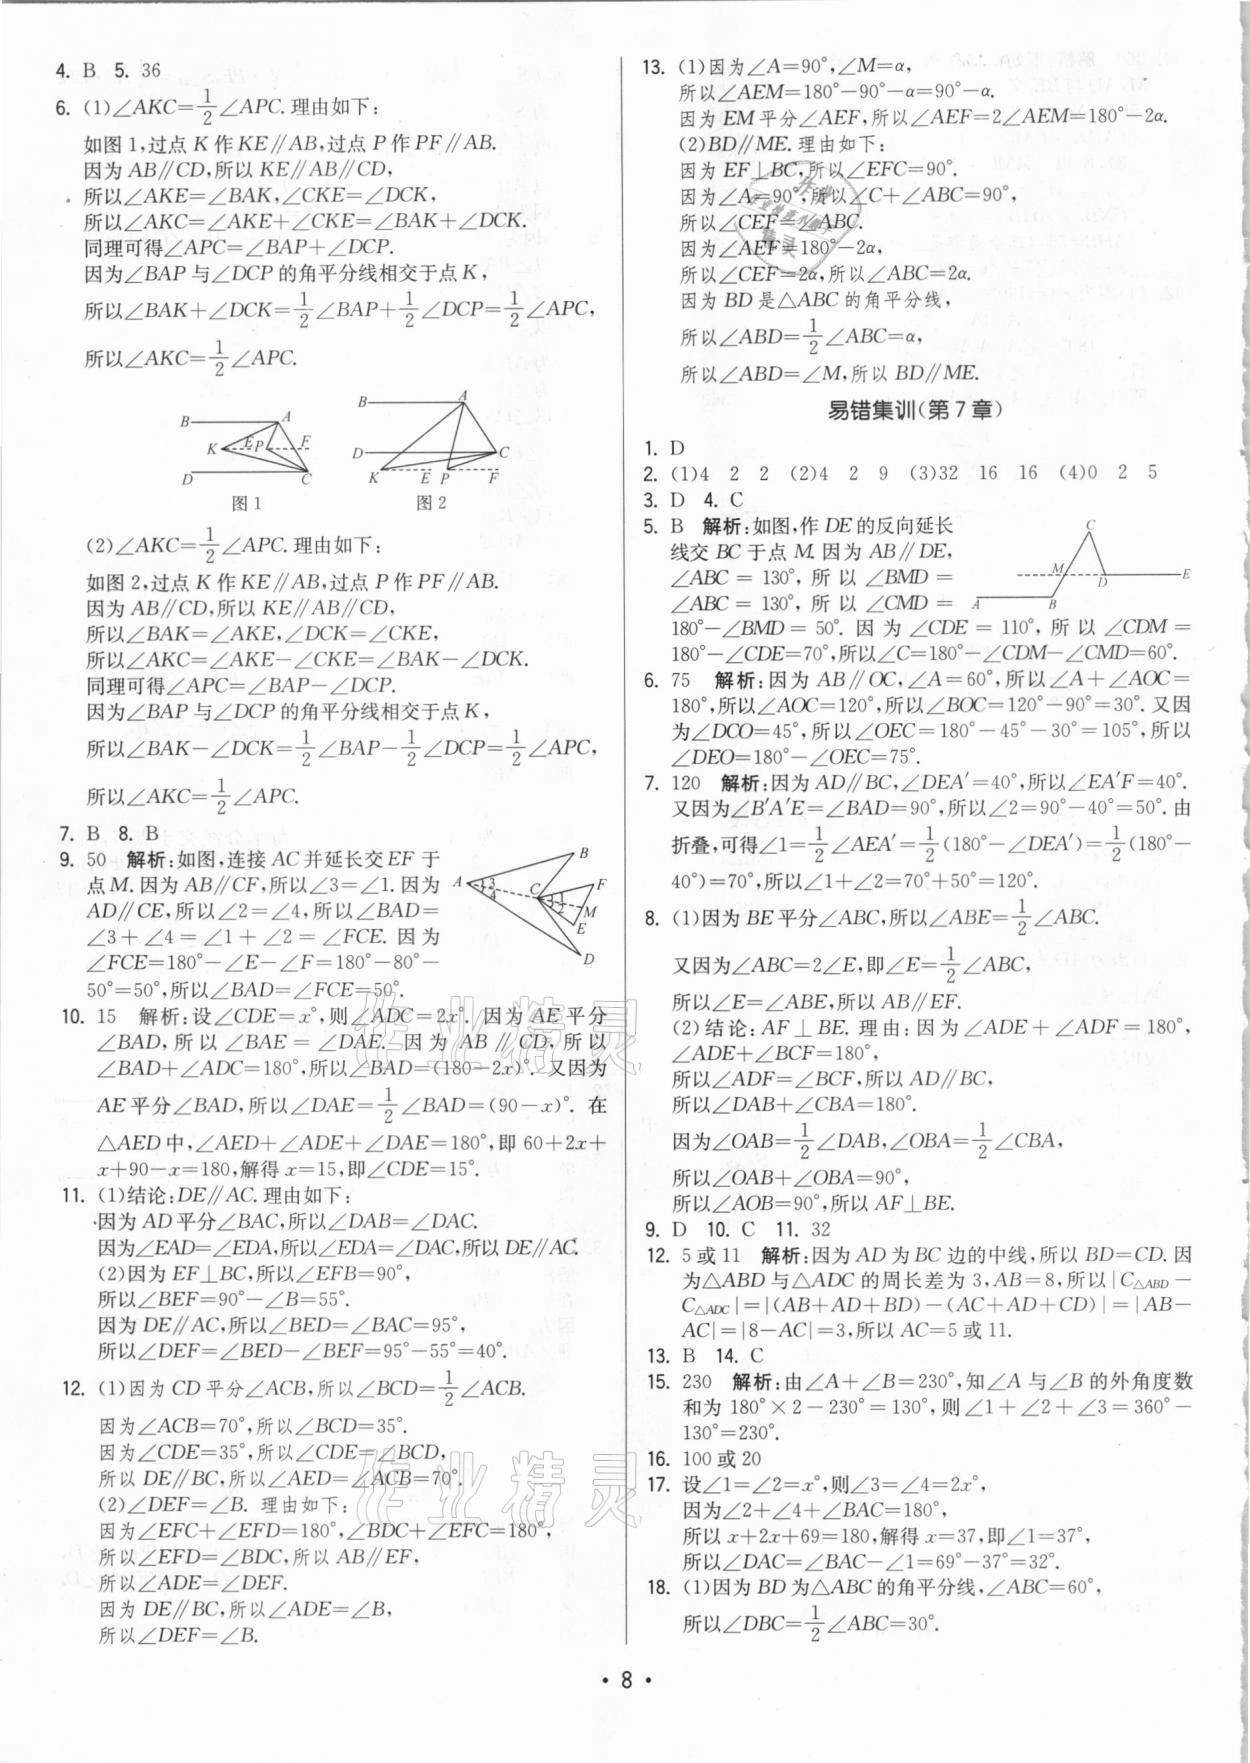 4. B 5. 36
6. (1)∠AKC=1/2∠APC.理由如下:
如图1,过点K作KE∥AB,过点P作PF∥AB.
因为AB∥CD,所以KE∥AB∥CD,
所以∠AKE=∠BAK,∠CKE=∠DCK,
所以∠AKC=∠AKE+∠CKE=∠BAK+∠DCK.
同理可得∠APC=∠BAP+∠DCP.
因为∠BAP与∠DCP的角平分线相交于点K,
所以∠BAK+∠DCK=1/2∠BAP+1/2∠DCP=1/2∠APC,
所以∠AKC=1/2∠APC.
B A K E P F D C
图1
B A D C K E P F
图2
(2)∠AKC=1/2∠APC.理由如下:
如图2,过点K作KE∥AB,过点P作PF∥AB.
因为AB∥CD,所以KE∥AB∥CD,
所以∠BAK=∠AKE,∠DCK=∠CKE,
所以∠AKC=∠AKE-∠CKE=∠BAK-∠DCK.
同理可得∠APC=∠BAP-∠DCP.
因为∠BAP与∠DCP的角平分线相交于点K,
所以∠BAK-∠DCK=1/2∠BAP-1/2∠DCP=1/2∠APC,
所以∠AKC=1/2∠APC.
7. B 8. B
9. 50 解析:如图,连接AC并延长交EF于
点M.因为AB∥CF,所以∠3=∠1.因为
AD∥CE,所以∠2=∠4,所以∠BAD=
∠3+∠4=∠1+∠2=∠FCE.因为
∠FCE=180°-∠E-∠F=180°-80°-
50°=50°,所以∠BAD=∠FCE=50°.
A 3 4 B C 1 2 F M E D
10. 15 解析:设∠CDE=x°,则∠ADC=2x°.因为AE平分
∠BAD,所以∠BAE=∠DAE.因为AB∥CD,所以
∠BAD+∠ADC=180°,所以∠BAD=(180-2x)°.又因为
AE平分∠BAD,所以∠DAE=1/2∠BAD=(90-x)°.在
△AED中,∠AED+∠ADE+∠DAE=180°,即60+2x+
x+90-x=180,解得x=15,即∠CDE=15°.
11. (1)结论:DE∥AC.理由如下:
因为AD平分∠BAC,所以∠DAB=∠DAC.
因为∠EAD=∠EDA,所以∠EDA=∠DAC,所以DE∥AC.
(2)因为EF⊥BC,所以∠EFB=90°,
所以∠BEF=90°-∠B=55°.
因为DE∥AC,所以∠BED=∠BAC=95°,
所以∠DEF=∠BED-∠BEF=95°-55°=40°.
12. (1)因为CD平分∠ACB,所以∠BCD=1/2∠ACB.
因为∠ACB=70°,所以∠BCD=35°.
因为∠CDE=35°,所以∠CDE=∠BCD,
所以DE∥BC,所以∠AED=∠ACB=70°.
(2)∠DEF=∠B.理由如下:
因为∠EFC+∠EFD=180°,∠BDC+∠EFC=180°,
所以∠EFD=∠BDC,所以AB∥EF,
所以∠ADE=∠DEF.
因为DE∥BC,所以∠ADE=∠B,
所以∠DEF=∠B.
13. (1)因为∠A=90°,∠M=α,
所以∠AEM=180°-90°-α=90°-α.
因为EM平分∠AEF,所以∠AEF=2∠AEM=180°-2α.
(2)BD∥ME.理由如下:
因为EF⊥BC,所以∠EFC=90°.
因为∠A=90°,所以∠C+∠ABC=90°,
所以∠CEF=∠ABC.
因为∠AEF=180°-2α,
所以∠CEF=2α,所以∠ABC=2α.
因为BD是△ABC的角平分线,
所以∠ABD=1/2∠ABC=α,
所以∠ABD=∠M,所以BD∥ME.
易错集训(第7章)
1. D
2. (1)4 2 2 (2)4 2 9 (3)32 16 16 (4)0 2 5
3. D 4. C
5. B 解析:如图,作DE的反向延长
线交BC于点M.因为AB∥DE,
∠ABC=130°,所以∠BMD=
∠ABC=130°,所以∠CMD=
180°-∠BMD=50°.因为∠CDE=110°,所以∠CDM=
180°-∠CDE=70°,所以∠C=180°-∠CDM-∠CMD=60°.
C M D E A B
6. 75 解析:因为AB∥OC,∠A=60°,所以∠A+∠AOC=
180°,所以∠AOC=120°,所以∠BOC=120°-90°=30°.又因
为∠DCO=45°,所以∠OEC=180°-45°-30°=105°,所以
∠DEO=180°-∠OEC=75°.
7. 120 解析:因为AD∥BC,∠DEA′=40°,所以∠EA′F=40°.
又因为∠B′A′E=∠BAD=90°,所以∠2=90°-40°=50°.由
折叠,可得∠1=1/2∠AEA′=1/2(180°-∠DEA′)=1/2(180°-
40°)=70°,所以∠1+∠2=70°+50°=120°.
8. (1)因为BE平分∠ABC,所以∠ABE=1/2∠ABC.
又因为∠ABC=2∠E,即∠E=1/2∠ABC,
所以∠E=∠ABE,所以AB∥EF.
(2)结论:AF⊥BE.理由:因为∠ADE+∠ADF=180°,
∠ADE+∠BCF=180°,
所以∠ADF=∠BCF,所以AD∥BC,
所以∠DAB+∠CBA=180°.
因为∠OAB=1/2∠DAB,∠OBA=1/2∠CBA,
所以∠OAB+∠OBA=90°,
所以∠AOB=90°,所以AF⊥BE.
9. D 10. C 11. 32
12. 5或11 解析:因为AD为BC边的中线,所以BD=CD.因
为△ABD与△ADC的周长差为3,AB=8,所以|C△ABD-
C△ADC|=|(AB+AD+BD)-(AC+AD+CD)|=|AB-
AC|=|8-AC|=3,所以AC=5或11.
13. B 14. C
15. 230 解析:由∠A+∠B=230°,知∠A与∠B的外角度数
和为180°×2-230°=130°,则∠1+∠2+∠3=360°-
130°=230°.
16. 100或20
17. 设∠1=∠2=x°,则∠3=∠4=2x°,
因为∠2+∠4+∠BAC=180°,
所以x+2x+69=180,解得x=37,即∠1=37°,
所以∠DAC=∠BAC-∠1=69°-37°=32°.
18. (1)因为BD为△ABC的角平分线,∠ABC=60°,
所以∠DBC=1/2∠ABC=30°.
作业精灵
作业精灵
• 8 •